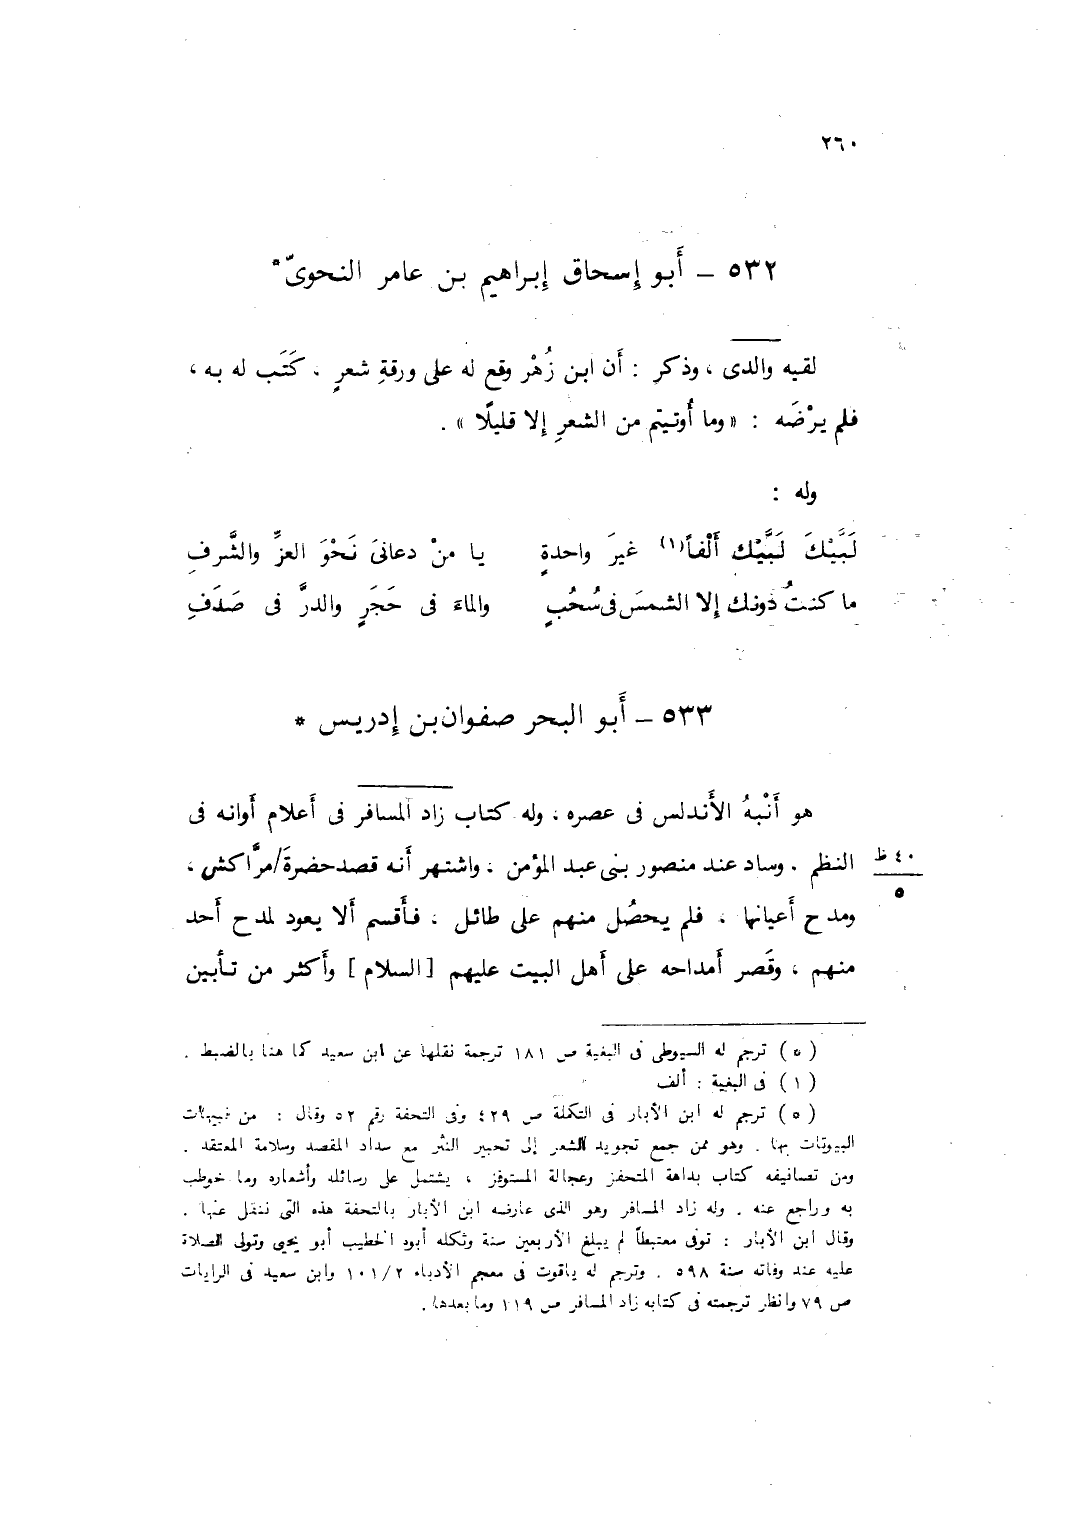 ٢٦٠
٥٣٢ – أَبو إِسحاق إِبراهيم بن عامر النحوىّ*
لقيه والدى ، وذكر : أَن ابن زُهْر وقع له على ورقةِ شعرٍ . كَتَب له به ،
فلم يرْضَه : «وما أُوتيتم من الشعرِ إلا قليلًا» .
وله :
لَبَّيْكَ لَبَّيْك أَلْفاً(١) غيرَ واحدةٍ يا منْ دعانىَ نَحْوَ العزِّ والشَّرفِ
ما كنتُ دُونك إلا الشمسَ فى سُحُبٍ والماءَ فى حَجَرٍ والدرَّ فى صَدَفِ
٥٣٣ – أَبو البحر صفوان بن إِدريس *
هو أَنْبهُ الأَندلس فى عصره ، وله كتاب زاد المسافر فى أَعلام أَوانه فى
النظم . وساد عند منصور بنى عبد المؤمن . واشتهر أَنه قصد حضرةَ/مرَّاكش ، ٤٠ ظ
٥
ومدح أَعيانها ، فلم يحصُل منهم على طائل ، فأَقسم أَلا يعود لمدح أَحد
منهم ، وقَصر أَمداحه على أَهل البيت عليهم [السلام] وأَكثر من تأبين
(*) ترجم له السيوطى فى البغية ص ١٨١ ترجمة نقلها عن ابن سعيد كما هنا بالضبط .
(١) فى البغية : ألف
(*) ترجم له ابن الأبار فى التكملة ص ٤٢٩ وفى التحفة رقم ٥٢ وقال : من نبيهات
البيوتات بها . وهو ممن جمع تجويد الشعر إلى تحبير النثر مع سداد المقصد وسلامة المعتقد .
ومن تصانيفه كتاب بداهة المتحفز وعجالة المستوفز ، يشتمل على رسائله وأشعاره وما خوطب
به وراجع عنه . وله زاد المسافر وهو الذى عارضه ابن الأبار بالتحفة هذه التى ننقل عنها .
وقال ابن الأبار : توفى معتبطاً لم يبلغ الأربعين سنة وثكله أبوه الخطيب أبو يحيى وتولى الصلاة
عليه عند وفاته سنة ٥٩٨ . وترجم له ياقوت فى معجم الأدباء ١٠١/٢ وابن سعيد فى الرايات
ص ٧٩ وانظر ترجمته فى كتابه زاد المسافر ص ١١٩ وما بعدها .